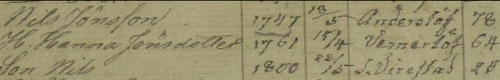 Nils Jönsson 1747 18/5 Anderslöf 78
H. Hanna Jönsdotter 1761 15/4 Vemerlöf 64
Son Nils 1800 22/5 S. Virestad 28